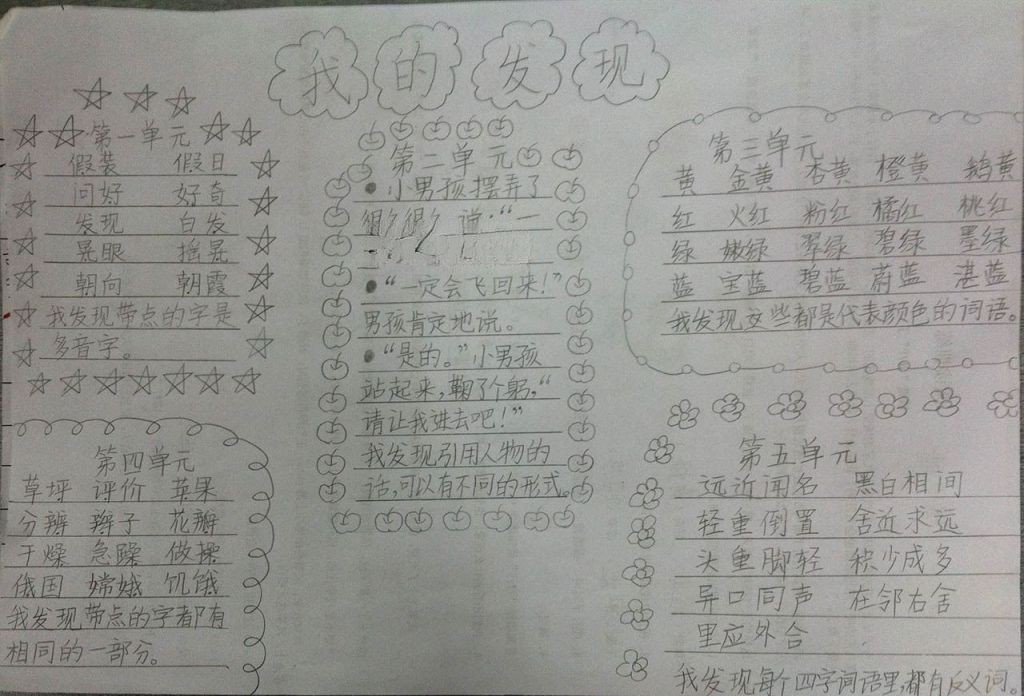 我的发现
第一单元
假装 假日
问好 好奇
发现 白发
晃眼 摇晃
朝向 朝霞
我发现带点的字是
多音字。
第二单元
●小男孩摆弄了
很久很久，说：“一
●“一定会飞回来！”
男孩肯定地说。
●“是的。”小男孩
站起来，鞠了个躬，“
请让我进去吧！”
我发现引用人物的
话，可以有不同的形式。
第三单元
黄 金黄 杏黄 橙黄 鹅黄
红 火红 粉红 橘红 桃红
绿 嫩绿 翠绿 碧绿 墨绿
蓝 宝蓝 碧蓝 蔚蓝 湛蓝
我发现这些都是代表颜色的词语。
第四单元
草坪 评价 苹果
分辨 辫子 花瓣
干燥 急躁 做操
俄国 嫦娥 饥饿
我发现带点的字都有
相同的一部分。
第五单元
远近闻名 黑白相间
轻重倒置 舍近求远
头重脚轻 积少成多
异口同声 在邻右舍
里应外合
我发现每个四字词语里，都有反义词。